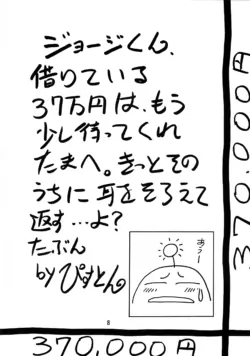 ジョージくん、
借りている
37万円は、もう
少し待ってくれ
たまへ。きっとその
うちに耳をそろえて
返す…よ?
たぶん
by ぴすとん
あうー
8
370,000円
370,000円